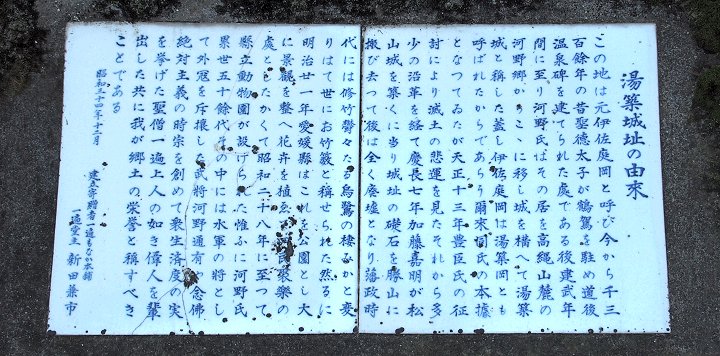 湯築城址の由来
この地は元伊佐庭岡と呼び今から千三
百餘年の昔聖徳太子が鶴駕を駐め道後
温泉碑を建てられた處である後建武年
間に至り河野氏はその居を高縄山麓の
河野郷からこゝに移し城を構へて湯築
城と稱した蓋し伊佐庭岡は湯築岡とも
呼ばれたからであらう爾来同氏の本據
となつてゐたが天正十三年豊臣氏の征
討により滅土の悲運を見たそれから多
少の沿革を経て慶長七年加藤嘉明が松
山城を築くに当り城址の礎石を勝山に
搬び去つて後は全く廃墟となり藩政時
代には脩竹鬱々たる烏鷺の棲みかと変
りはて世にお竹藪と稱せられた然るに
明治廿一年愛媛縣はこれを公園とし大
に景観を整へ花卉を植ゑ民衆楽の
處としたかくて昭和二十八年に至つて
縣立動物園が設けられた惟ふに河野氏
累世五十餘代の中には水軍の将とし
て外寇を斥攘した武将河野通有や念佛
絶対主義の時宗を創めて衆生済度の実
を挙げた聖僧一遍上人の如き偉人を輩
出した共に我が郷土の栄誉と稱すべき
ことである
昭和三十四年十二月
建立寄贈者一遍もなか本舗
一遍堂主 新田兼市